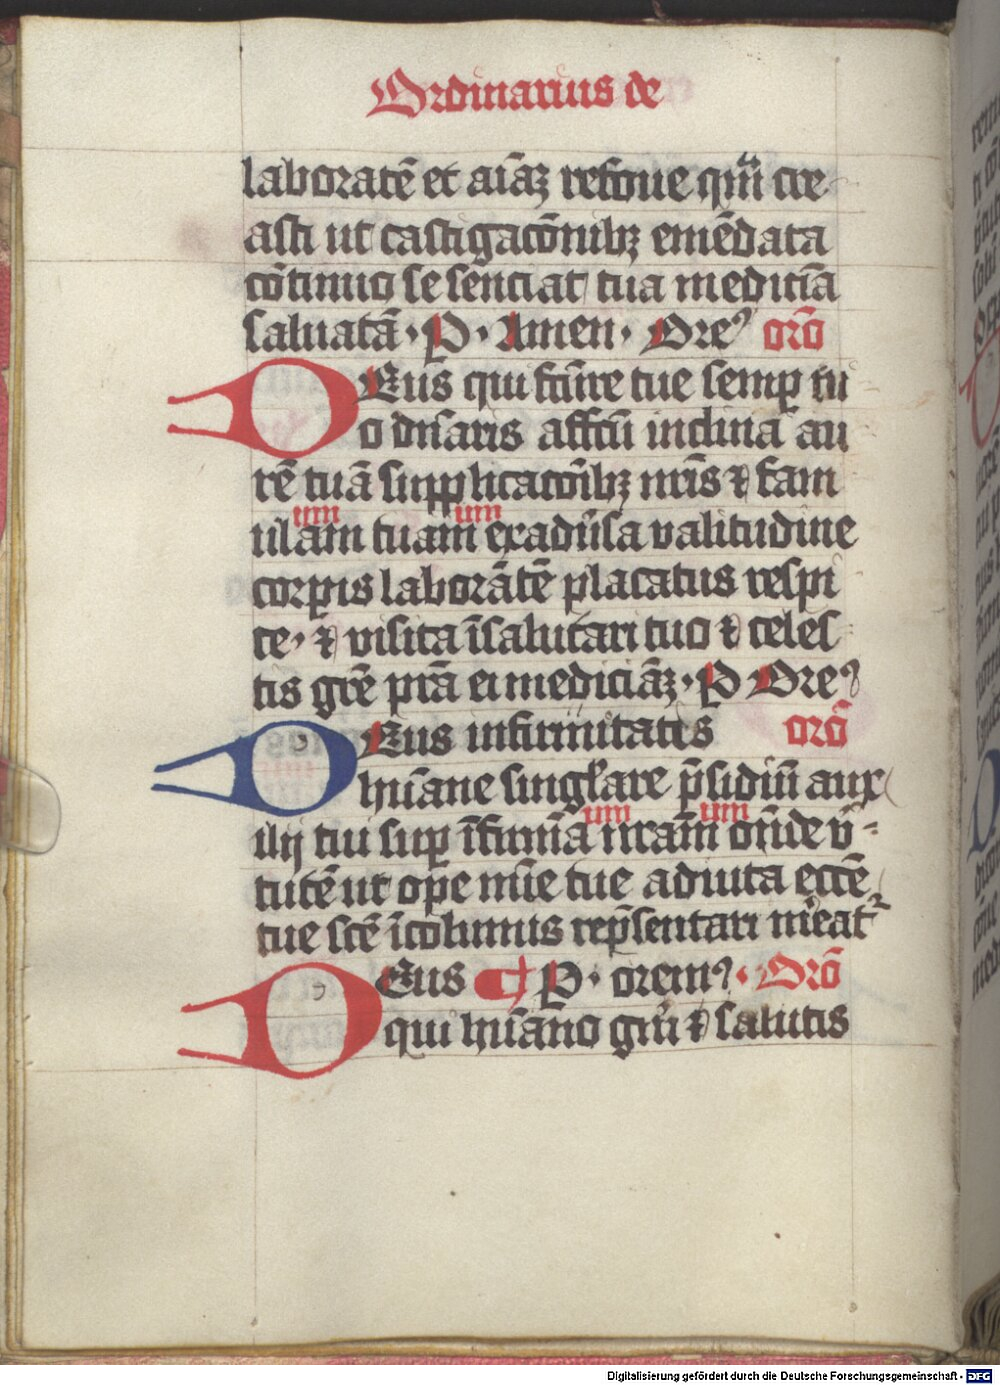 Ordinarius de
laboratē et aīaꝫ refoue quā cre
asti ut castigacōnibꝫ emēdata
cōtinuo se senciat tua medicīa
saluatā · P · Amen · Oreꝰ orō
DEus qui fāure tue semꝑ tu
o dn̄aris affcū inclina au
rē tuā supplicacōibꝫ nr̄is ⁊ fam
ulam tuam exadūsa valitudine
um um
corꝑis laborātē placatus respi
ce · ⁊ visita ī salutari tuo ⁊ celes
tis grē prā ei mediciāꝫ · P Oreꝰ
DEus infirmitatis orō
hūane singłare p̄sidiū aux
ilij tui suꝑ īfirmā nr̄am on̄de v̄
um um
tutē ut ope mīe tue adiuta ecc̄e
tue sc̄e īcolumis rep̄sentari mr̄eatᷣ
DEus ¶ P · oremꝰ · Orō
qui hūano gn̄i ⁊ salutis
Digitalisierung gefördert durch die Deutsche Forschungsgemeinschaft - DFG